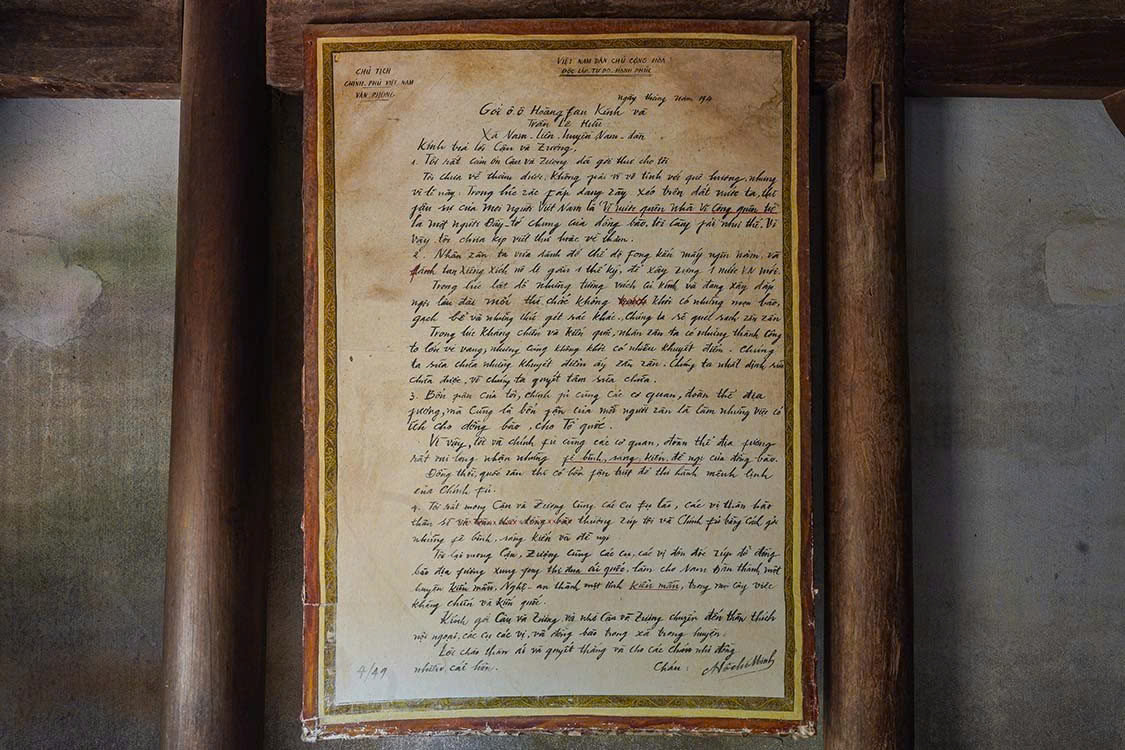 CHỦ TỊCH
CHINH-PHỦ VIỆT NAM
VĂN PHÒNG
VIỆT NAM DÂN CHỦ CỘNG HÒA
ĐỘC LẬP, TỰ DO, HẠNH PHÚC
ngày tháng năm 194
Gởi ô ô Hoàng fan Kính và
Trần Lê Hữu
Xã Nam-Liên, huyện Nam-đàn
Kính trả lời Cậu và Zượng.
1. Tôi rất cảm ơn Cậu và Zượng đã gởi thư cho tôi
Tôi chưa về thăm được. Không fải vì vô tình với quê hương, nhưng
vì lẽ này: Trong lúc zặc fáp đang zầy xéo trên đất nước ta, thì
fận sự của mỗi người Việt Nam là Vì nước quên nhà Vì Công quên
là một người Đầy-tớ chung của đồng bào, tôi càng fải như thế. Vì
vậy, tôi chưa kịp viết thư hoặc về thăm.
2. Nhân zân ta vừa đánh đổ chế độ fong kiến mấy ngìn năm, và
đánh tan xiềng xích nô lệ gần 1 thế kỷ, để xây zựng 1 nước V.N mới.
Trong lúc lật đổ những tường vách cũ kính và đang xây đắp
ngôi lâu đài mới thì chắc không khỏi có những mọn bào,
gạch bể và những thứ rác khác. Chúng ta sẽ quét sạch zần zần
Trong lúc kháng chiến và kiến quốc, nhân zân ta có những thành công
to lớn vẻ vang, nhưng cũng không khỏi có nhiều khuyết điểm. Chúng
ta sửa chữa những khuyết điểm ấy zần zần. Chúng ta nhất định sửa
chữa được, vì chúng ta quyết tâm sửa chữa.
3. Bổn fận của tôi, chính fủ cùng các cơ quan, đoàn thể địa
fương, mà cũng là bổn fận của mỗi người zân là làm những việc có
ích cho đồng bào, cho Tổ quốc.
Vì vậy, tôi và chính fủ cùng các cơ quan, đoàn thể địa fương
rất vui lòng nhận những fê bình, sáng kiến, đề ngị của đồng bào.
Đồng thời, quốc zân thì có bổn fận triệt để thi hành mệnh lịnh
của Chính fủ.
4. Tôi rất mong Cậu và Zượng cùng các cụ fụ lão, các vị thân hào
thân sĩ và toàn thể đồng bào thường zúp tôi và Chính fủ bằng cách gởi
những fê bình, sáng kiến và đề ngị.
Tôi lại mong Cậu, Zượng cùng các cụ, các vị đôn đốc zúp đỡ đồng
bào địa fương xung fong thi đua ái quốc, làm cho Nam Đàn thành một
huyện kiểu mẫu, Nghệ-an thành một tỉnh kiểu mẫu, trong mọi công việc
kháng chiến và kiến quốc.
Kính gởi Cậu và Zượng và nhờ Cậu và Zượng chuyển đến thân thích
nội ngoại, các cụ các vị, và đồng bào trong xã trong huyện.
Lời chào thân ái và quyết thắng và cho các cháu nhi đồng
nhiều cái hôn.
Cháu: Hồ Chí Minh
4/49